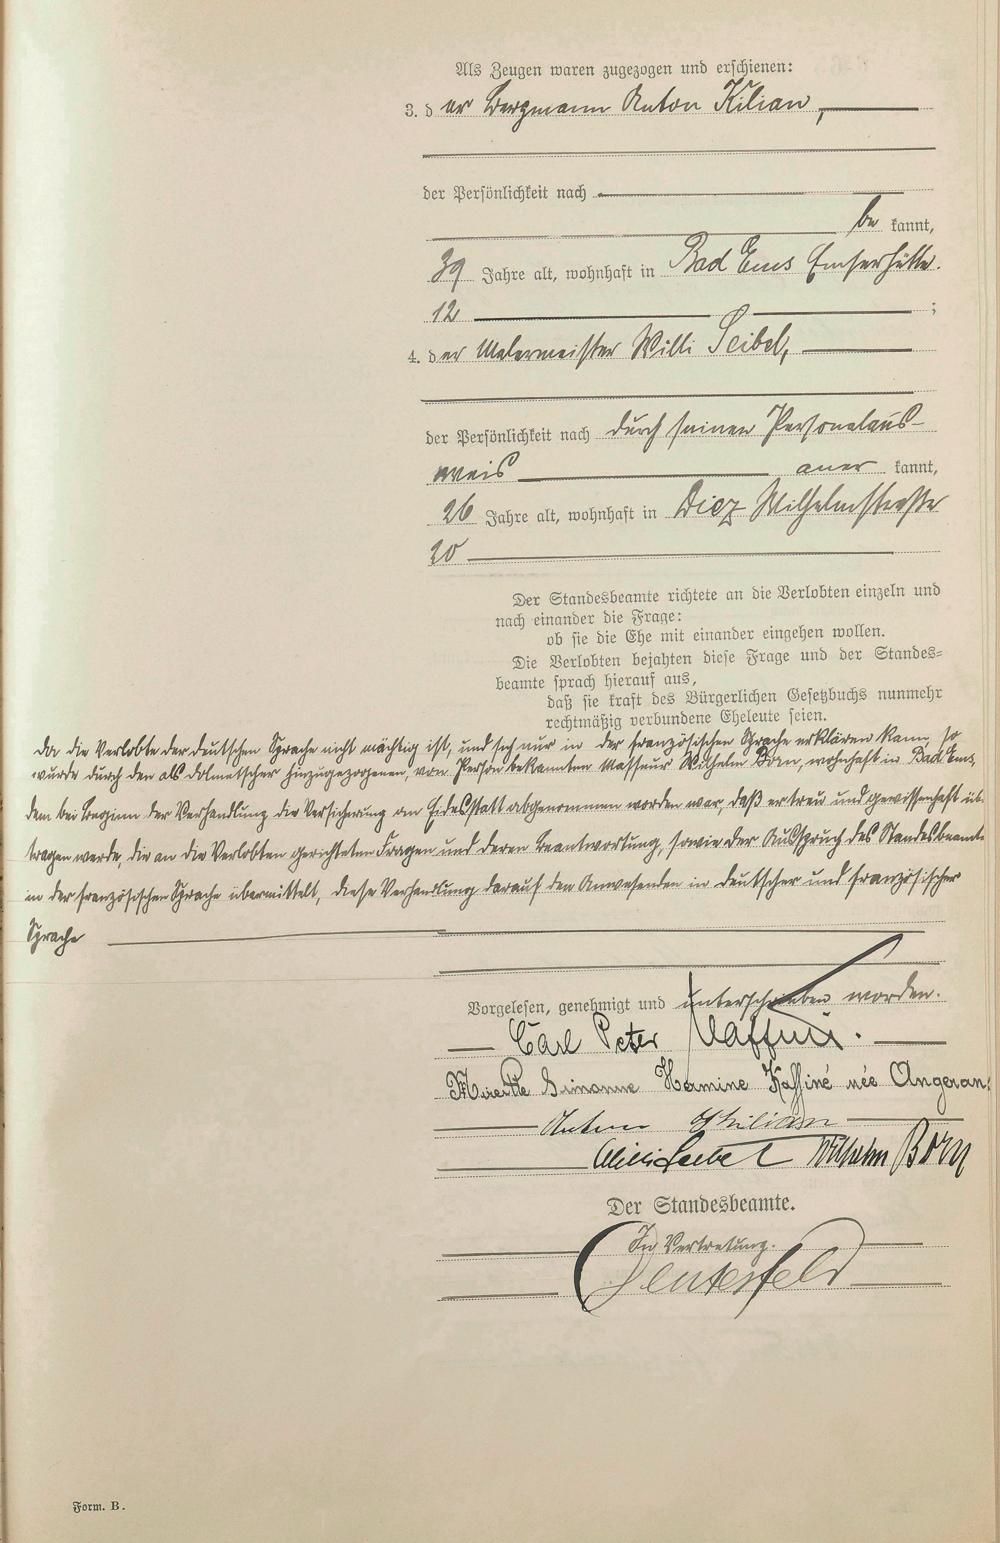 Als Zeugen waren zugezogen und erschienen:
3. der Bergmann Anton Kilian,
der Persönlichkeit nach
be kannt,
39 Jahre alt, wohnhaft in Bad Ems Emserhütte.
12 ;
4. der Malermeister Willi Seibel,
der Persönlichkeit nach durch seinen Personalaus-
weis aner kannt,
26 Jahre alt, wohnhaft in Diez Wilhelmstraße
20
Der Standesbeamte richtete an die Verlobten einzeln und
nach einander die Frage:
ob sie die Ehe mit einander eingehen wollen.
Die Verlobten bejahten diese Frage und der Standes=
beamte sprach hierauf aus,
daß sie kraft des Bürgerlichen Gesetzbuchs nunmehr
rechtmäßig verbundene Eheleute seien.
Da die Verlobte der deutschen Sprache nicht mächtig ist, und sich nur in der französischen Sprache erklären kann, so
wurde durch den als Dolmetscher hinzugezogenen, von Person bekannten Masseur Wilhelm Born, wohnhaft in Bad Ems,
dem bei Beginn der Verhandlung die Versicherung an Eidesstatt abgenommen worden war, daß er treu und gewissenhaft über-
tragen werde, die an die Verlobten gerichteten Fragen und deren Beantwortung, sowie der Ausspruch des Standesbeamten
in der französischen Sprache übermittelt, diese Verhandlung darauf den Anwesenden in deutscher und französischer
Sprache
Vorgelesen, genehmigt und unterschrieben worden.
Carl Peter
Hermine Kaffiné née
Anton Kilian
Willi Seibel Wilhelm Born
Der Standesbeamte.
In Vertretung.
Form. B.